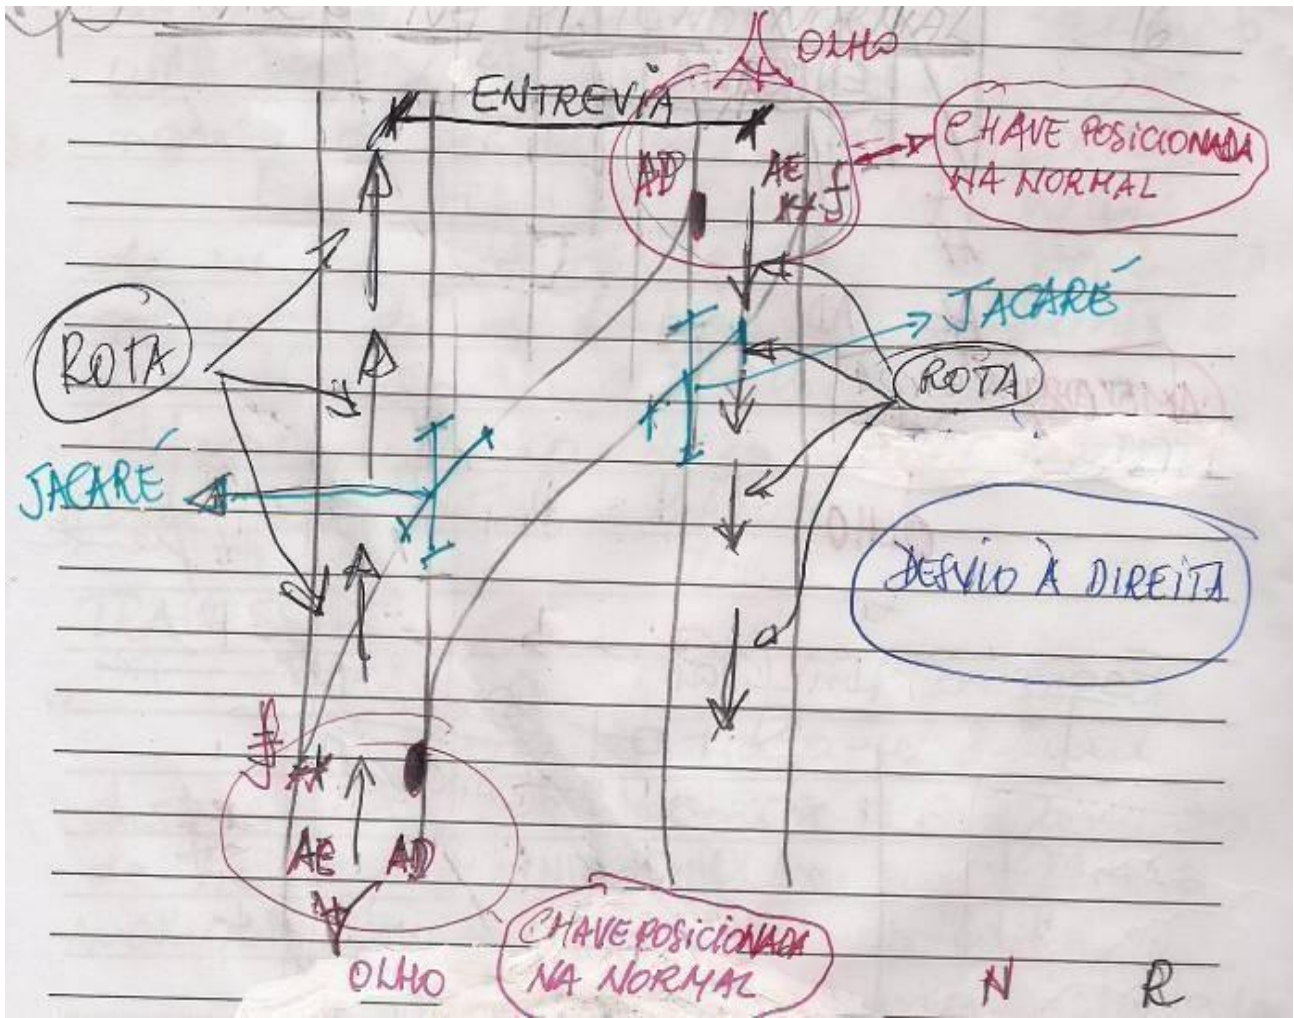 OLHO
ENTREVIA
CHAVE POSICIONADA
NA NORMAL
AD
AE
JACARÉ
ROTA
ROTA
JACARÉ
DESVIO À DIREITA
AE
AD
OLHO
CHAVE POSICIONADA
NA NORMAL
N
R